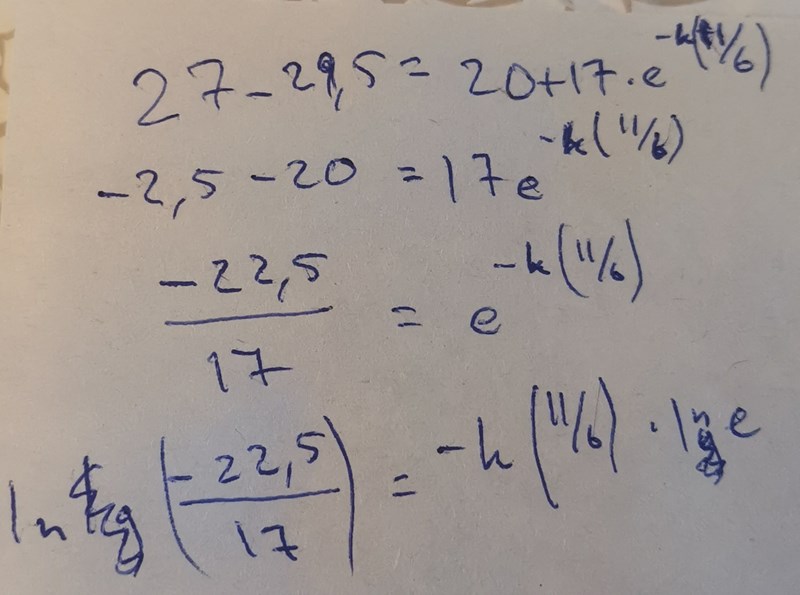 27 - 29,5 = 20+17·e^-k(11/6)
-2,5 - 20 = 17e^-k(11/6)
-22,5/17 = e^-k(11/6)
ln (-22,5/17) = -k(11/6) · ln e